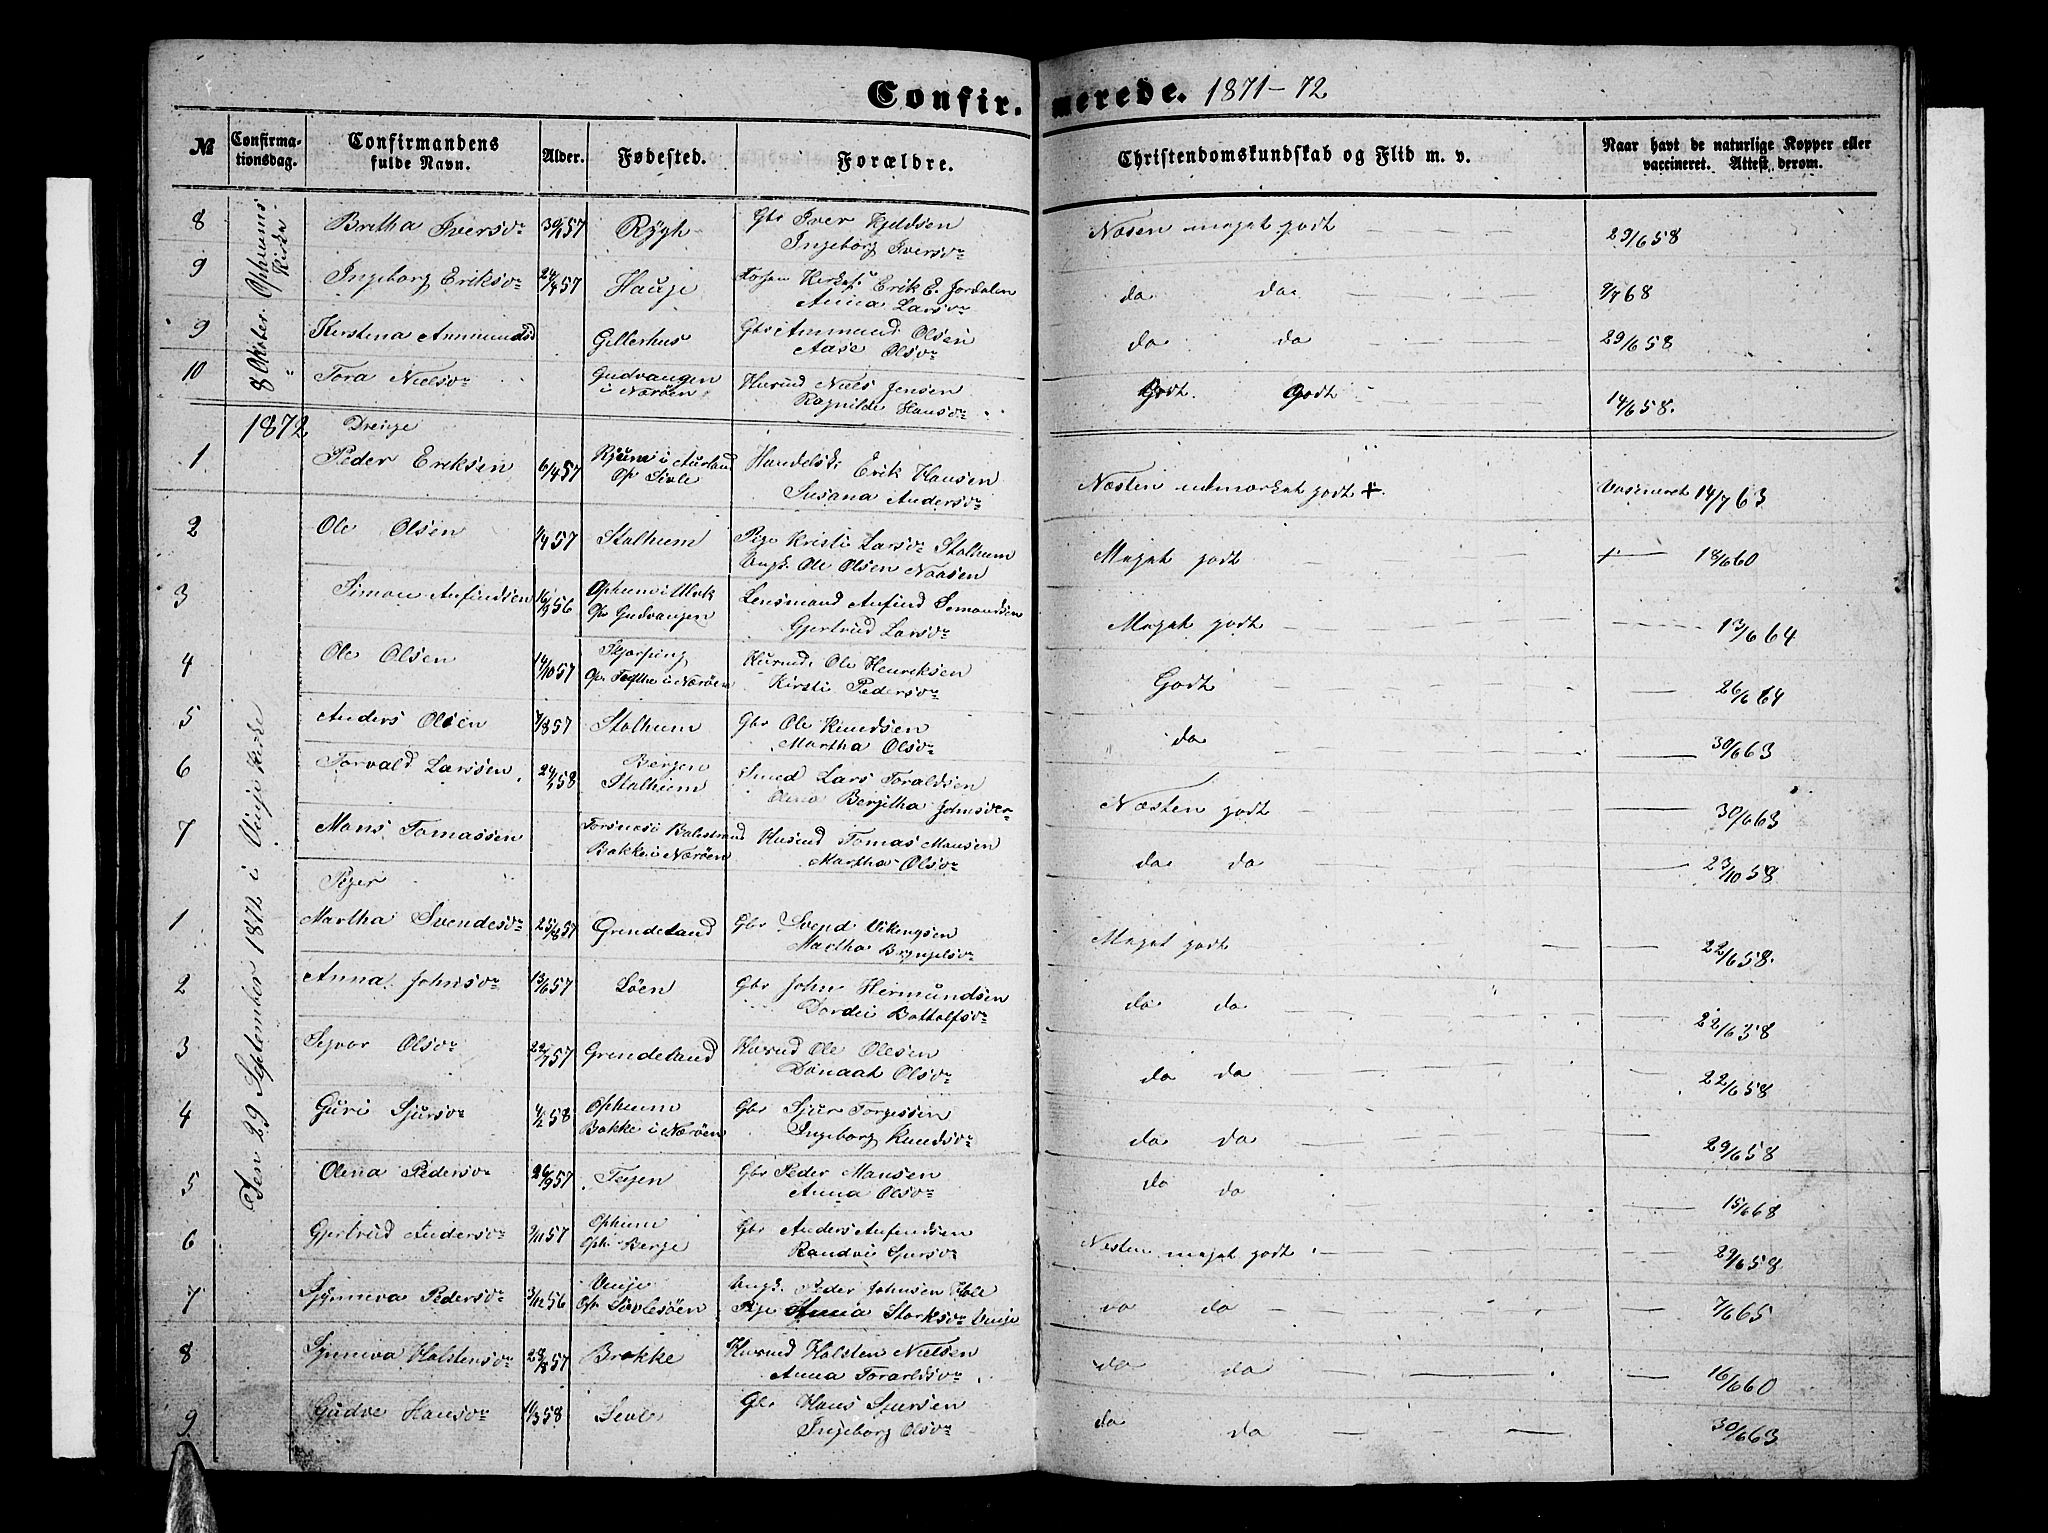 Confirmerede. 1871-72
№ Confirmationsdag. Confirmandens fulde Navn. Alder. Fødested. Forældre. Christendomskundskab og Flid m. v. Naar havt de naturlige Kopper eller vaccineret. Attest derom.
8 Oktober. Ophums Kirke.
8 Britha Iversdr 30/1 57 Rÿgh Gbr Iver
Ingeborg Iversdr
Næsten meget godt 29/6 58
9 Ingeborg Eriksdr 24/4 57 Hauge Erik E. Jordalen
Anna Larsdr
do do 9/7 68
9 Kirstina Ammundsd Gillerhus Gbr Ammund Olsen
Aase Olsdr
do do 29/6 58
10 Tora Nielsdr Gudvangen
i Nærøen Husmd Niels Jensen
Ragnilde Hansdr
Godt Godt 14/6 58.
1872 Drenge
1 Peder Eriksen 6/4 57 Kjum i Aurland
Op Sivle Handelsk: Erik Hansen
Susana Andersdr
Næsten udmærket godt + Vaseneret 14/7 63
2 Ole Olsen 1/4 57 Stalhum Pige Kristi Larsdr Stalhum
Ungk. Ole Olsen Naasen
Meget godt 18/6 60
3 Simon Anfindsen 16/9 56 Ophum i Vik
Op Gudvangen Lensmand Anfind Semondsen
Gjertrud Larsdr
Meget godt 13/6 64
4 Ole Olsen 14/10 57 Skjerping
Op. i Nærøen Husmd. Ole Henriksen
Kirsti Pedersdr
Godt 26/6 64
5 Anders Olsen 7/8 57 Stalhum Gbr Ole Knudsen
Martha Olsdr
do 30/6 63
6 Torvald Larssen 24/1 58 Bergen
Stalhum Smed Lars Toraldsen
Olina Bergitha Johnsdr
Næsten godt 30/6 63
7 Mons Tomassen Torsnæs i Balestrand
Bakke i Nærøen Husmd Tomas Monsen
Martha Olsdr
do do 23/10 58
Den 29 September 1872 i Vinje Kirke
Piger
1 Martha Svendesdr 25/8 57 Grendeland Gbr Svend Vikengsen
Martha Bryngelsdr
Meget godt 22/6 58.
2 Anna Johnsdr 13/6 57 Løen Gbr John Hermundsen
Dordei Battolfsdr
do do 22/6 58
3 Sejvor Olsdr 22/7 57 Grendeland Husmd Ole Olesen
Dønaat Olsdr
do do 22/6 58
4 Guri Sjursdr 4/2 58 Ophum
Bakke i Nærøen Gbr Sjur Torgessen
Ingeborg Knudsdr
do do 29/6 58
5 Olina Pedersdr 26/9 57 Tejen Gbr Peder Monsen
Anna Olsdr
do do 15/6 68
6 Gjertrud Andersdr 9/11 57 Ophum
Oph: Berge Gbr Anders Anfindsen
Randvei Sjursdr
Nesten meget godt 29/6 58
7 Synneva Pedersdr 3/12 56 Vinje
Op Sivlesøen Ungk. Peder Johnsen Hole
Pige Anna Storksdr Vinje
do do 7/6 65
8 Synneva Halstensdr 28/8 57 Brekke Husmd Halsten Nielsen
Anna Toraldsdr
do do 16/6 60
9 Gudve Hansdr 11/3 58 Sevle Gbr Hans Sjursen
Ingeborg Olsdr
do do 30/6 63